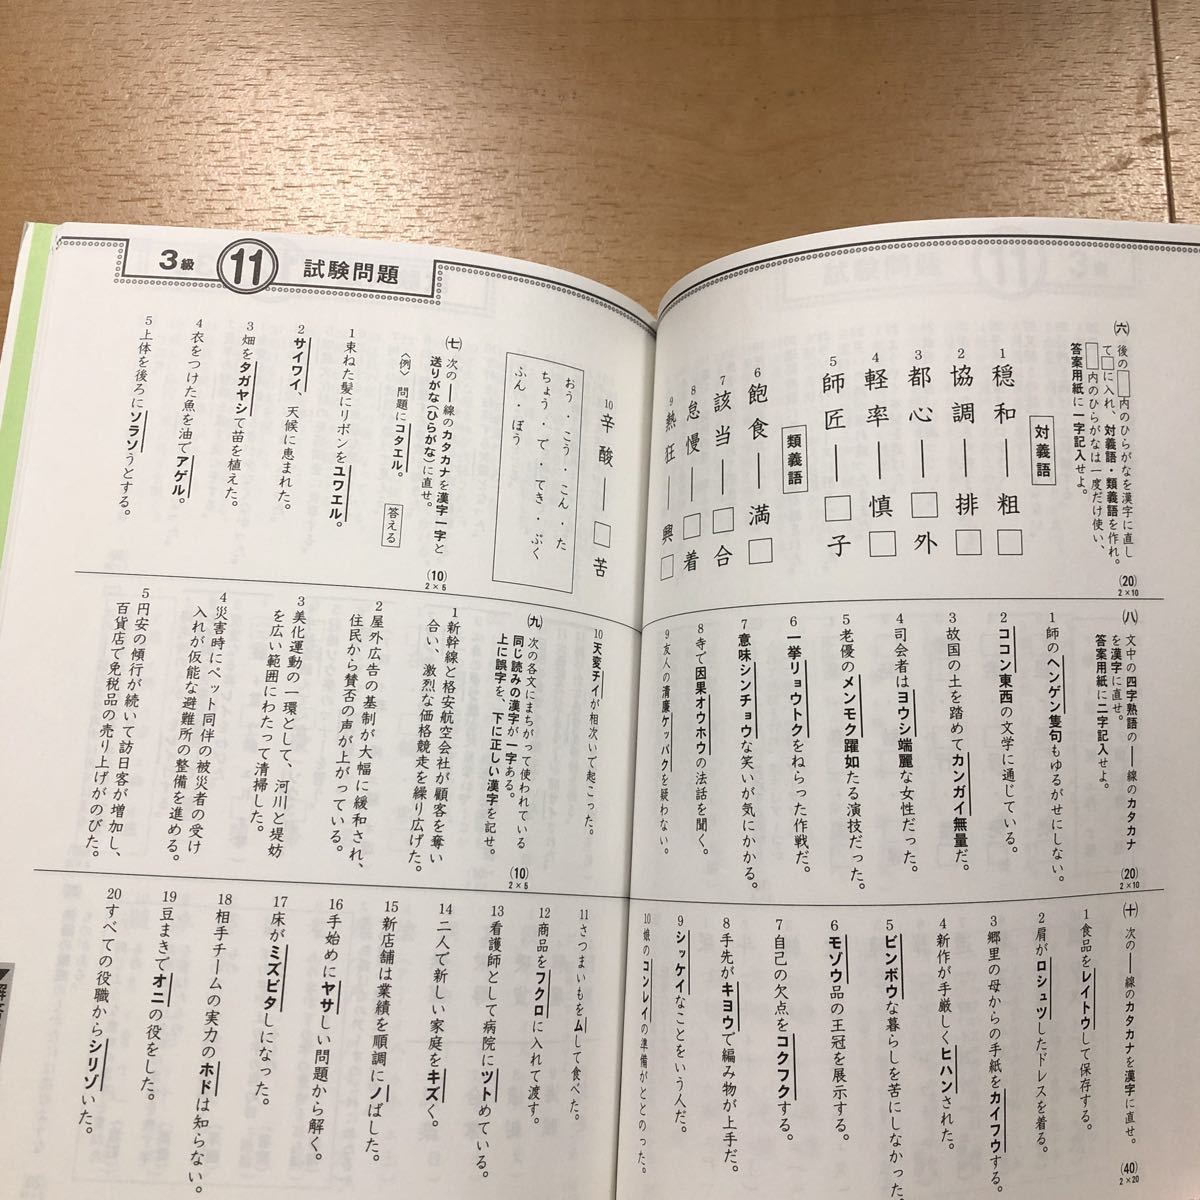 3級
11
試験問題
㈥ 後の□内のひらがなを漢字に直し
て□に入れ、対義語・類義語を作れ。
□内のひらがなは一度だけ使い、
答案用紙に一字記入せよ。
(20)
2×10
対義語
1 穏和――粗□
2 協調――排□
3 都心――□外
4 軽率――慎□
5 師匠――□子
類義語
6 飽食――満□
7 該当――□合
8 怠慢――□着
9 熱狂――興□
10 辛酸――□苦
おう・こう・こん・た
ちょう・て・てき・ぶく
ふん・ぼう
㈦ 次の――線のカタカナを漢字一字と
送りがな(ひらがな)に直せ。
(10)
2×5
〈例〉問題にコタエル。 答える
1 束ねた髪にリボンをユワエル。
2 サイワイ、天候に恵まれた。
3 畑をタガヤシて苗を植えた。
4 衣をつけた魚を油でアゲル。
5 上体を後ろにソラソうとする。
㈧ 文中の四字熟語の――線のカタカナ
を漢字に直せ。
答案用紙に二字記入せよ。
(20)
2×10
1 師のヘンゲン隻句もゆるがせにしない。
2 ココン東西の文学に通じている。
3 故国の土を踏めてカンガイ無量だ。
4 司会者はヨウシ端麗な女性だった。
5 老優のメンモク躍如たる演技だった。
6 一挙リョウトクをねらった作戦だ。
7 意味シンチョウな笑いが気にかかる。
8 寺で因果オウホウの法話を聞く。
9 友人の清廉ケッパクを疑わない。
10 天変チイが相次いで起こった。
㈨ 次の各文にまちがって使われている
同じ読みの漢字が一字ある。
上に誤字を、下に正しい漢字を記せ。
(10)
2×5
1 新幹線と格安航空会社が顧客を奪い
合い、激烈な価格競走を繰り広げた。
2 屋外広告の基制が大幅に緩和され、
住民から賛否の声が上がっている。
3 美化運動の一環として、河川と堤妨
を広い範囲にわたって清掃した。
4 災害時にペット同伴の被災者の受け
入れが仮能な避難所の整備を進める。
5 円安の傾行が続いて訪日客が増加し、
百貨店で免税品の売り上げがのびた。
㈩ 次の――線のカタカナを漢字に直せ。
(40)
2×20
1 食品をレイトウして保存する。
2 肩がロシュツしたドレスを着る。
3 郷里の母からの手紙をカイフウする。
4 新作が手厳しくヒハンされた。
5 ビンボウな暮らしを苦にしなかった
6 モゾウ品の王冠を展示する。
7 自己の欠点をコクフクする。
8 手先がキヨウで編み物が上手だ。
9 シッケイなことをいう人だ。
10 娘のコンレイの準備がととのった。
11 さつまいもをムして食べた。
12 商品をフクロに入れて渡す。
13 看護師として病院にツトめている。
14 二人で新しい家庭をキズく。
15 新店舗は業績を順調にノばした。
16 手始めにヤサしい問題から解く。
17 床がミズビタしになった。
18 相手チームの実力のホドは知らない。
19 豆まきでオニの役をした。
20 すべての役職からシリゾいた。